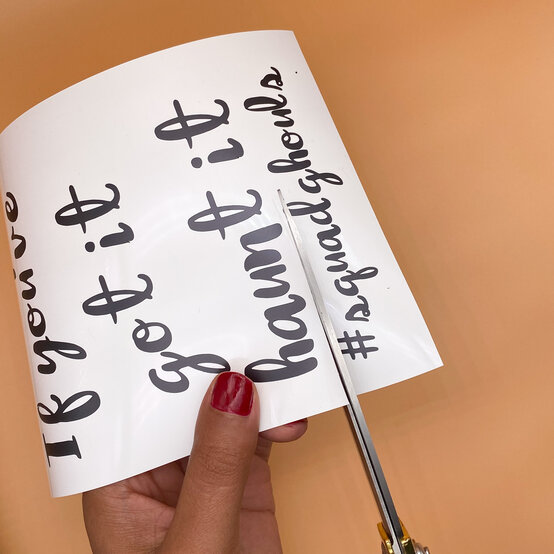 If you've
got it
haunt it
#squadghouls